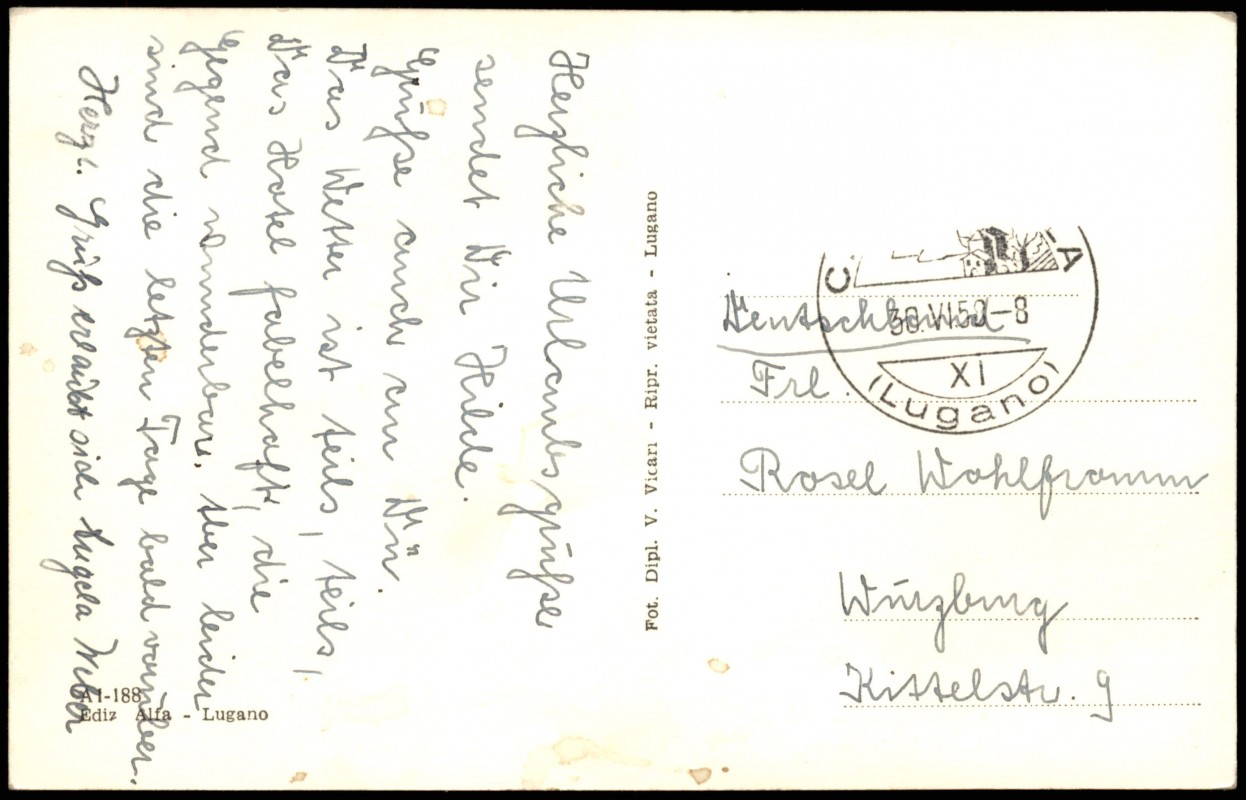 Herzliche Urlaubsgrüße
sendet Dir Hilde.
Grüße auch an Dŭ.
Das Wetter ist teils, teils,
Das Hotel fabelhaft, die
Gegend wunderbar. Aber leider
sind die letzten Tage bald vorüber.
Herzl. Grüß erlaubt sich Angela Weber
A1-188
Ediz Alfa - Lugano
Fot. Dipl. V. Vicari - Ripr. vietata - Lugano
(Lugano)
XI
Deutschland
Frl.
Rosel Wohlfromm
Würzburg
Kittelstr. 9